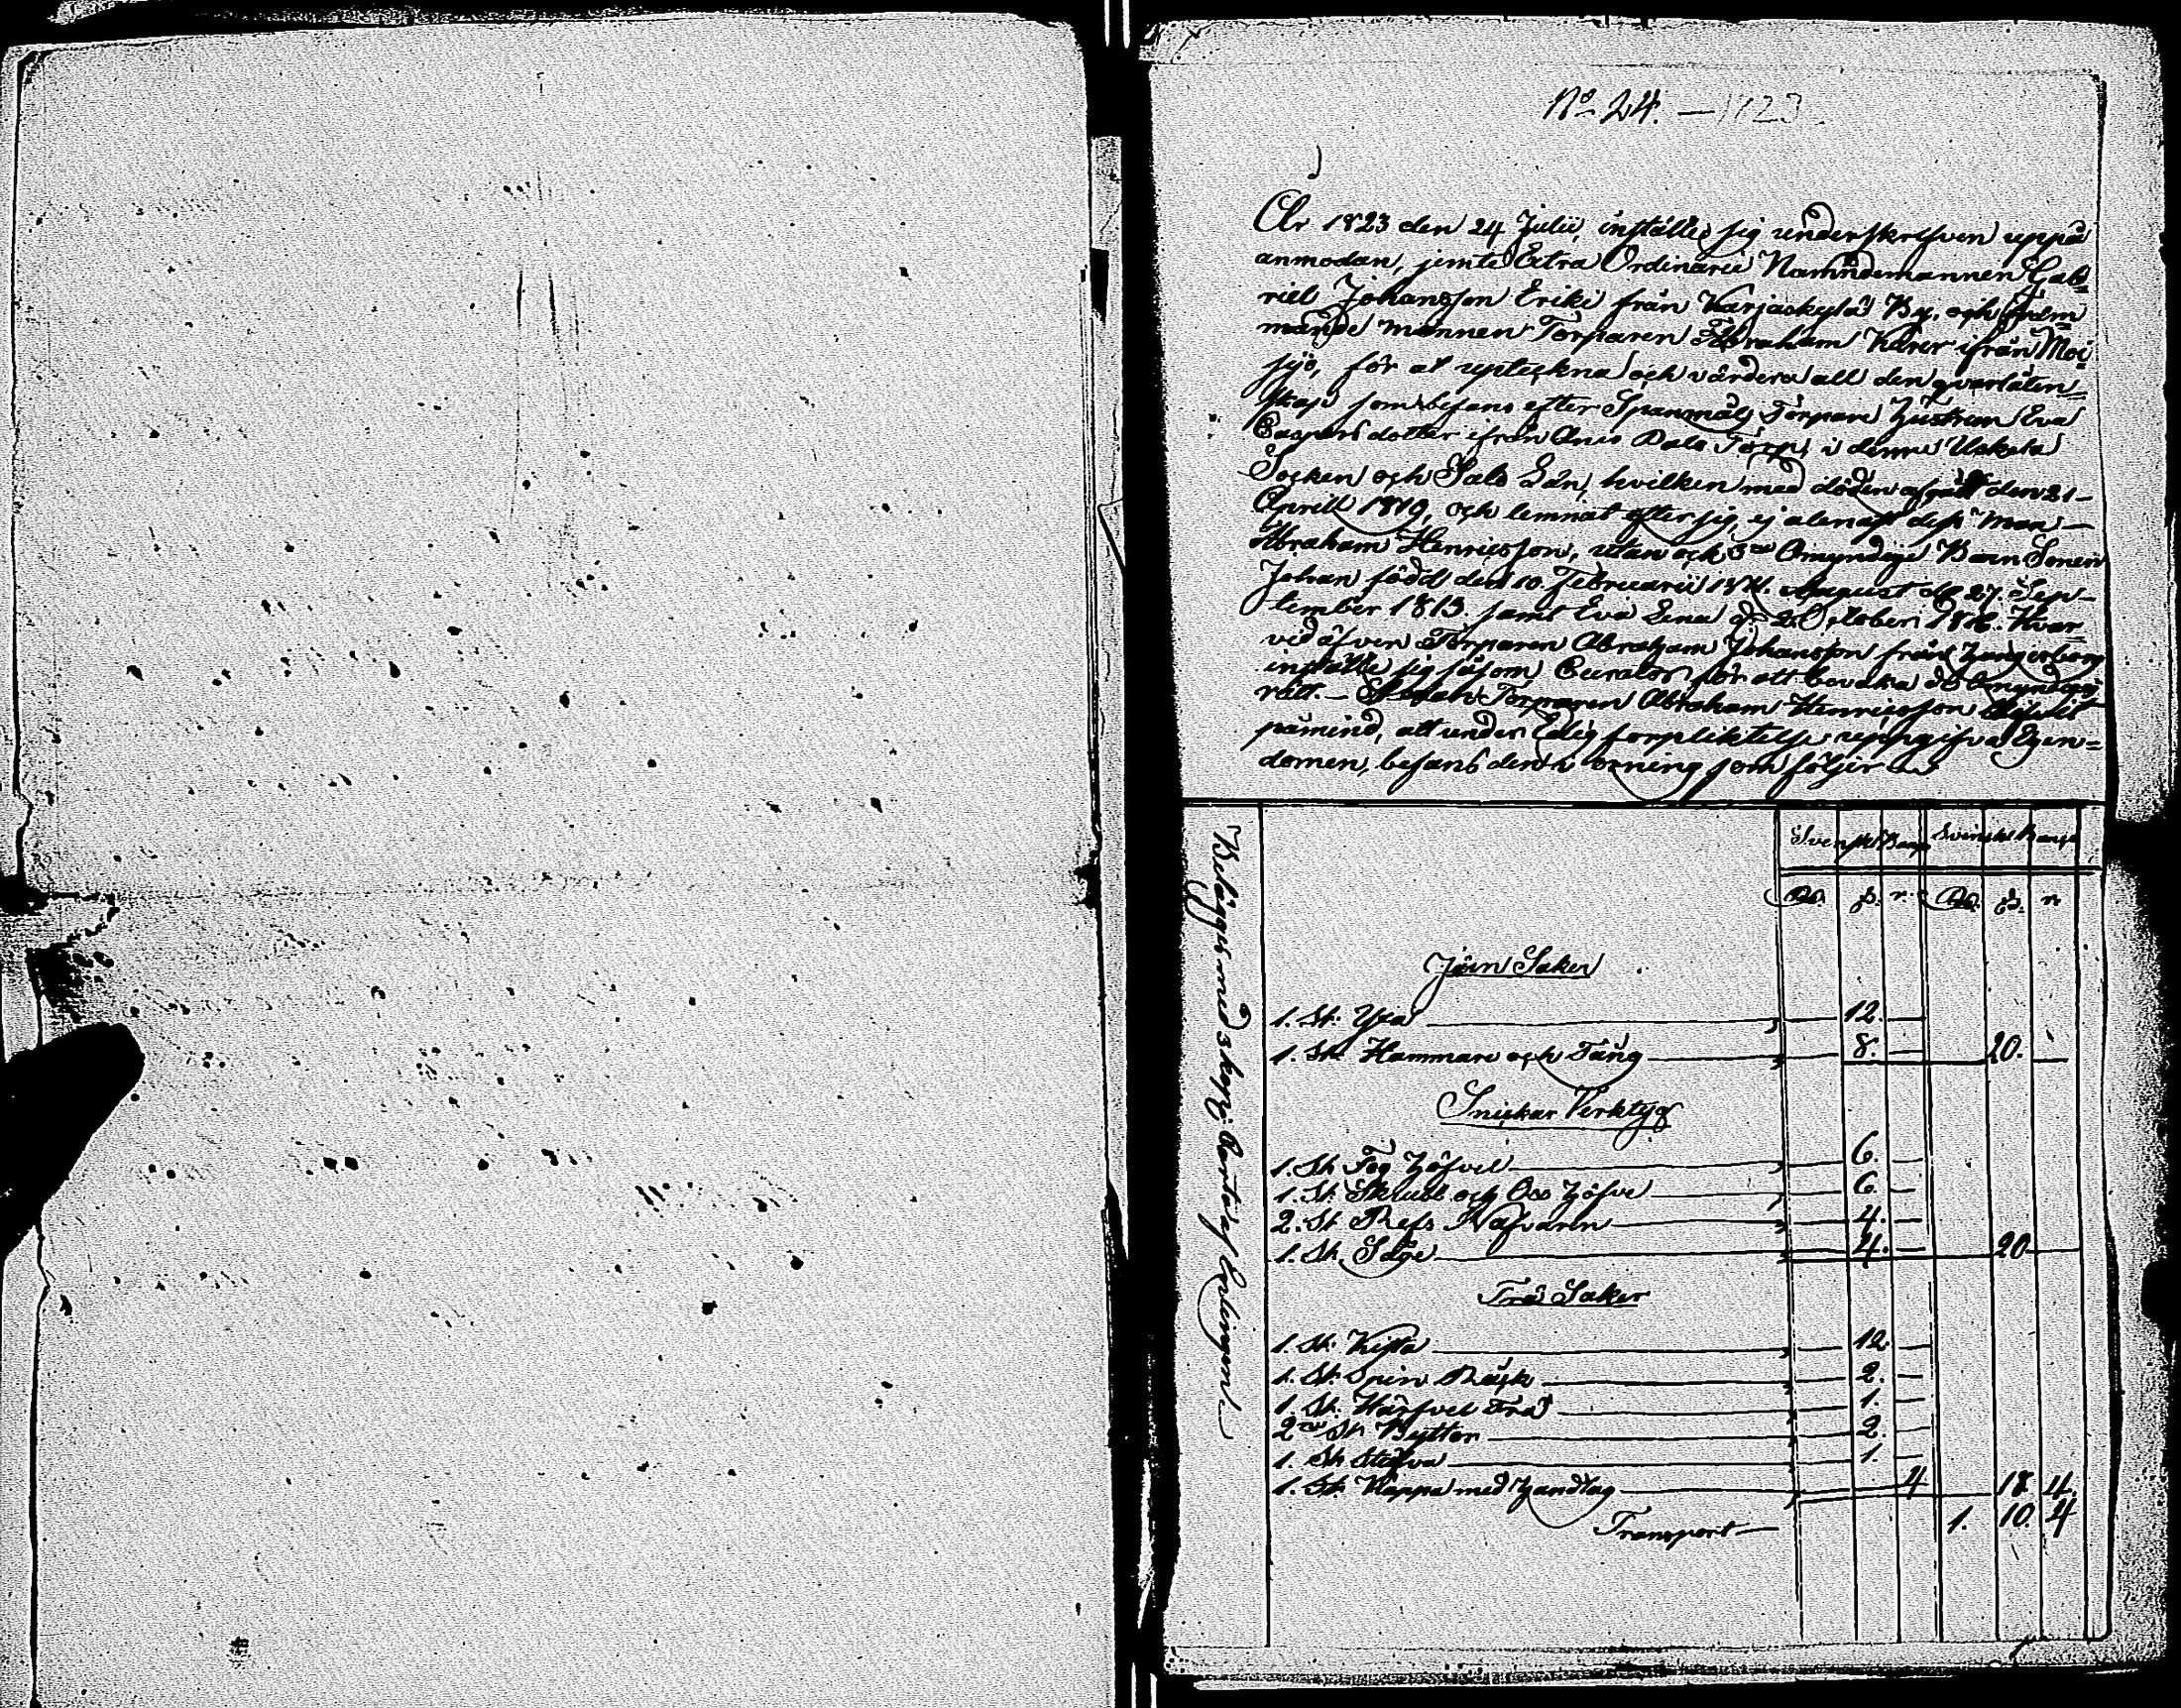 No 24. — 1823
År 1823 den 24 Julii, instälte sig underskrefven uppå
anmodan, jemte Extra Ordinarie Nämndemannen Gab=
riel Johansson Eriki från Karjaskylä By, och
mände mannen Torparen Abraham Karer ifrån Moi=
sjö, för at upteckna och värdera all den qvarlåten=
skap som befans efter Spanmåls Torpare Hustrun Eva
Caspersdotter ifrån Palo Torp, i denne Uskela
Socken och Salo Län, hvilken med döden afgått den 21
Aprill 1819, och lemnat efter sig, ej alenast dess Man
Abraham Henricsson, utan och 3ne Omyndige Barn Sonen
Johan född den 10 Februarii 1811. August do 27. Sep=
tember 1813 samt Eva Lena do 2 October 1816. Hvar
ved äfven Torparen Abraham Johansson från
instälte sig såsom Curator för att bevaka de Omyndiges
rätt. — Torparen Abraham Henricsson
påmind, att under Edelig förpliktelse uppgifva Egen=
domen, befans den i ordning som följer
Svenskt Banco Svenskt Banco
Rd. s. r. Rd. s. r.
Belägges med 3 kopp: Charta af Enlingen
Järn Saker
1. St. Yxa 12.
1. St. Hammare och Tång 8. 20.
Snickar Verktyg
1. St. Fog Höfvel 6.
1. St. Skrubb och Höfvel 6.
2. St. Refs Nafvarn 4.
1. St. Såge 4. 20
Trä Saker
1. St. Kista 12.
1. St. Spin Råck 2.
1. St. Härfvel Trä 1.
2ne St. Byttor 2.
1. St. Stäfva 1.
1. St. Kappa med Handtag 4 18. 4.
Transport 1. 10. 4